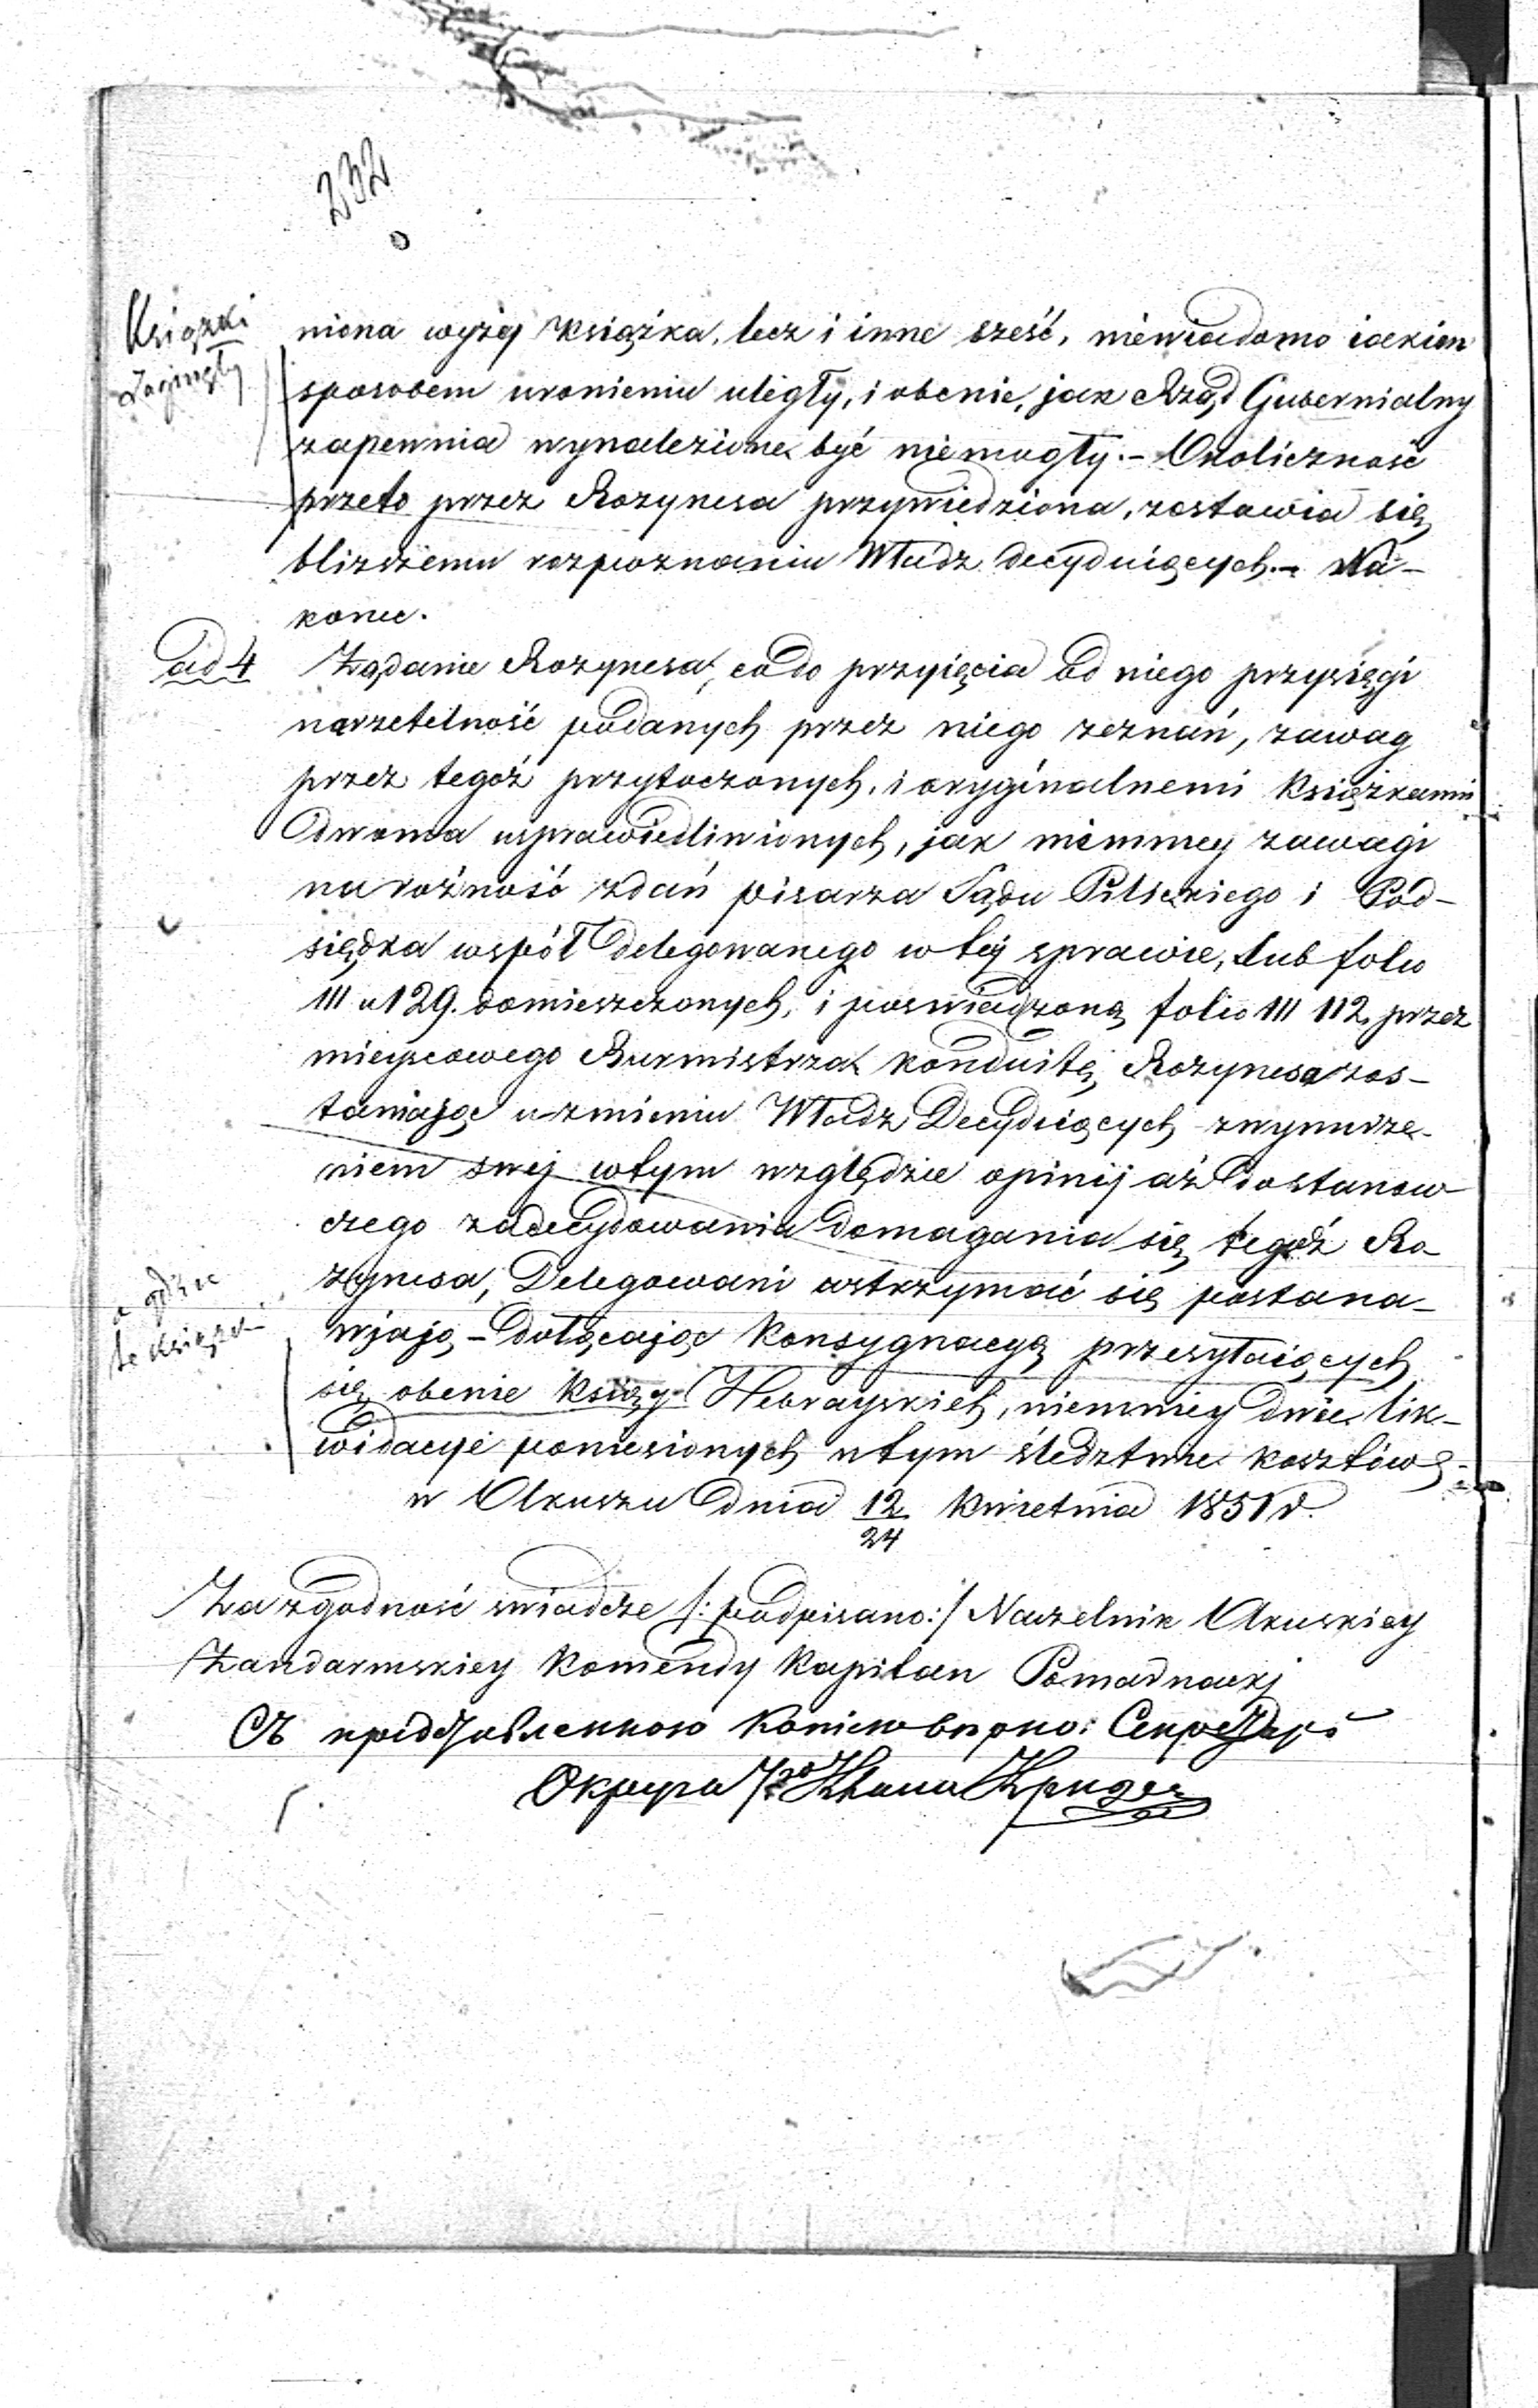 232
Książki
zaginęły
niona wyżej książka, lecz i inne sześć, niewiadomo iakiem
sposobem uronieniu uległy, i obecnie, jak Rząd Gubernialny
zapewnia wynalezione być niemogły. – Okoliczność
przeto przez Rozynesa przywiedziona, zostawia się
bliższemu rozpoznaniu Władz decyduiących. – Na-
koniec.
ad 4
Żądanie Rozynesa, co do przyięcia od niego przysięgi
narzetelność podanych przez niego zeznań, zawag
przez tegoż przytoczonych, i oryginalnemi książkami
dwoma usprawiedliwionych, jak niemniey zawagi
na różność zdań pisarza Sądu Pilickiego i Pod-
sędka współ delegowanego w tej sprawie, sub folio
111 u 129. domieszczonych, i poswiadzoną folio 111 112 przez
mieyscowego Burmistrza konduitę Rozynesa zos-
tawiając uznieniu Władz Decyduiących zwynurze-
niem swej wtym względzie opinij aż dostanow
czego zadecydowania domagania się tegoż Ro
zynesa, Delegowani wstrzymać się postana-
wiają – dołącając konsygnacyą przesyłaiących
się obecnie ksiąg Hebrayskich, niemniey dwie lik-
widacye poniesionych w tym śledztwie kosztów. –
a gdzie
te książki
w Olkuszu dnia 12/24 kwietnia 1851 r.
Za zgodność swiadcze /: podpisano :/ Naczelnik Olkuskiey
Żandarmskiey Komendy Kapitan Pomarnacki
Съ представленною Копiею вѣрно: Секретарь
Округа